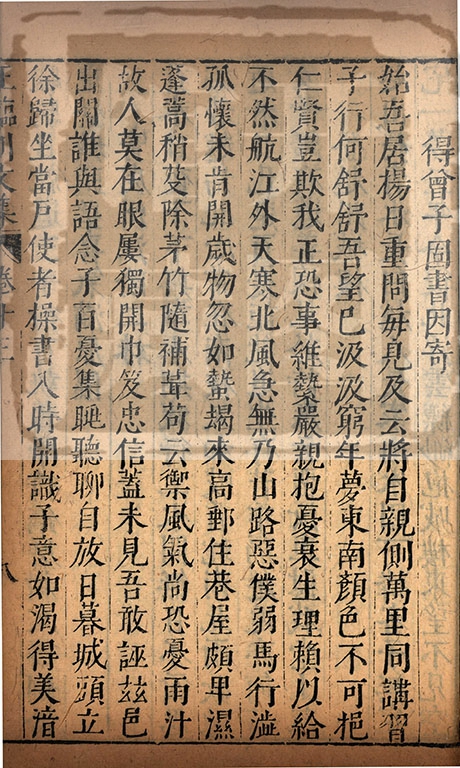 得曾子固書因寄
始吾居楊日重問毎見及云將自親側萬里同講習
子行何舒舒吾望已汲汲窮年夢東南顏色不可挹
仁賢豈欺我正恐事維縶嚴親抱憂衰生理賴以給
不然航江外天寒北風急無乃山路惡僕弱馬行澁
孤懷未肯開歲物忽如蟄朅來高郵住巷屋頗卑濕
蓬蒿稍芟除茅竹隨補葺苟云禦風氣尚恐憂雨汁
故人莫在眼屢獨開巾笈忠信蓋未見吾敢誣茲邑
出關誰與語念子百憂集眺聽聊自放日暮城頭立
徐歸坐當戶使者操書入時開識子意如渴得美湆
王臨川文集 卷十三 八